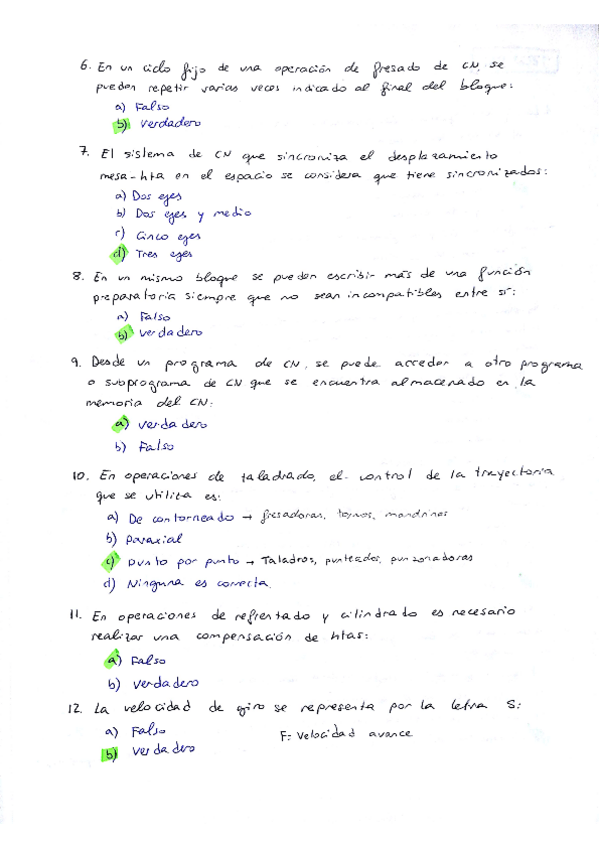 6. En un ciclo fijo de una operación de fresado de CN, se
pueden repetir varias veces indicado al final del bloque:
a) Falso
b) Verdadero
7. El sistema de CN que sincroniza el desplazamiento
mesa-hta en el espacio se considera que tiene sincronizados:
a) Dos ejes
b) Dos ejes y medio
c) Cinco ejes
d) Tres ejes
8. En un mismo bloque se pueden escribir más de una función
preparatoria siempre que no sean incompatibles entre sí:
a) Falso
b) Verdadero
9. Desde un programa de CN, se puede acceder a otro programa
o subprograma de CN que se encuentra almacenado en la
memoria del CN:
a) Verdadero
b) Falso
10. En operaciones de taladrado, el control de la trayectoria
que se utiliza es:
a) De contorneado → fresadoras, tornos, mandrines
b) Paraxial
c) Punto por punto → Taladros, punteados, punzonadoras
d) Ninguna es correcta.
11. En operaciones de refrentado y cilindrado es necesario
realizar una compensación de htas:
a) Falso
b) Verdadero
12. La velocidad de giro se representa por la letra S:
a) Falso F: Velocidad avance
b) Verdadero